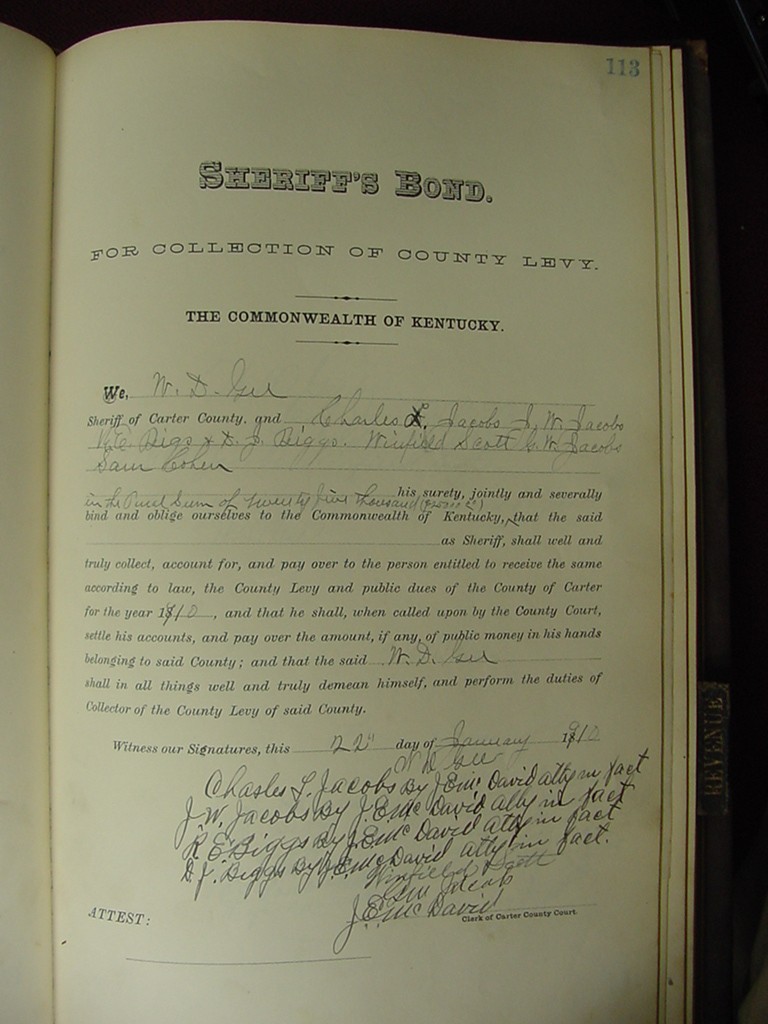 113
SHERIFF'S BOND.
FOR COLLECTION OF COUNTY LEVY.
THE COMMONWEALTH OF KENTUCKY.
We, W. D. Gee
Sheriff of Carter County, and Charles L. Jacobs J. W. Jacobs
R. E. Bigs & D. J. Biggs. Winfield Scott G. W. Jacobs
Sam Cohen
his surety, jointly and severally
in the Penal Sum of Twenty five Thousand
bind and oblige ourselves to the Commonwealth of Kentucky, that the said
as Sheriff, shall well and
truly collect, account for, and pay over to the person entitled to receive the same
according to law, the County Levy and public dues of the County of Carter
for the year 1910, and that he shall, when called upon by the County Court,
settle his accounts, and pay over the amount, if any, of public money in his hands
belonging to said County; and that the said W. D. Gee
shall in all things well and truly demean himself, and perform the duties of
Collector of the County Levy of said County.
Witness our Signatures, this 22" day of January 1910
W D Gee
Charles L. Jacobs By J.E. McDavid atty in fact
J. W. Jacobs By J. E. McDavid atty in fact
R. E. Biggs By J. E. McDavid atty in fact
D. J. Biggs By J. E. McDavid atty in fact.
Winfield Scott
G W Jacob
J. E. McDavid
ATTEST:
Clerk of Carter County Court.
REVENUE